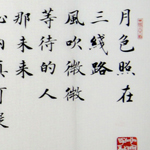 月色照在
三线路
風吹微微
等待的人
那未来
心内真可疑